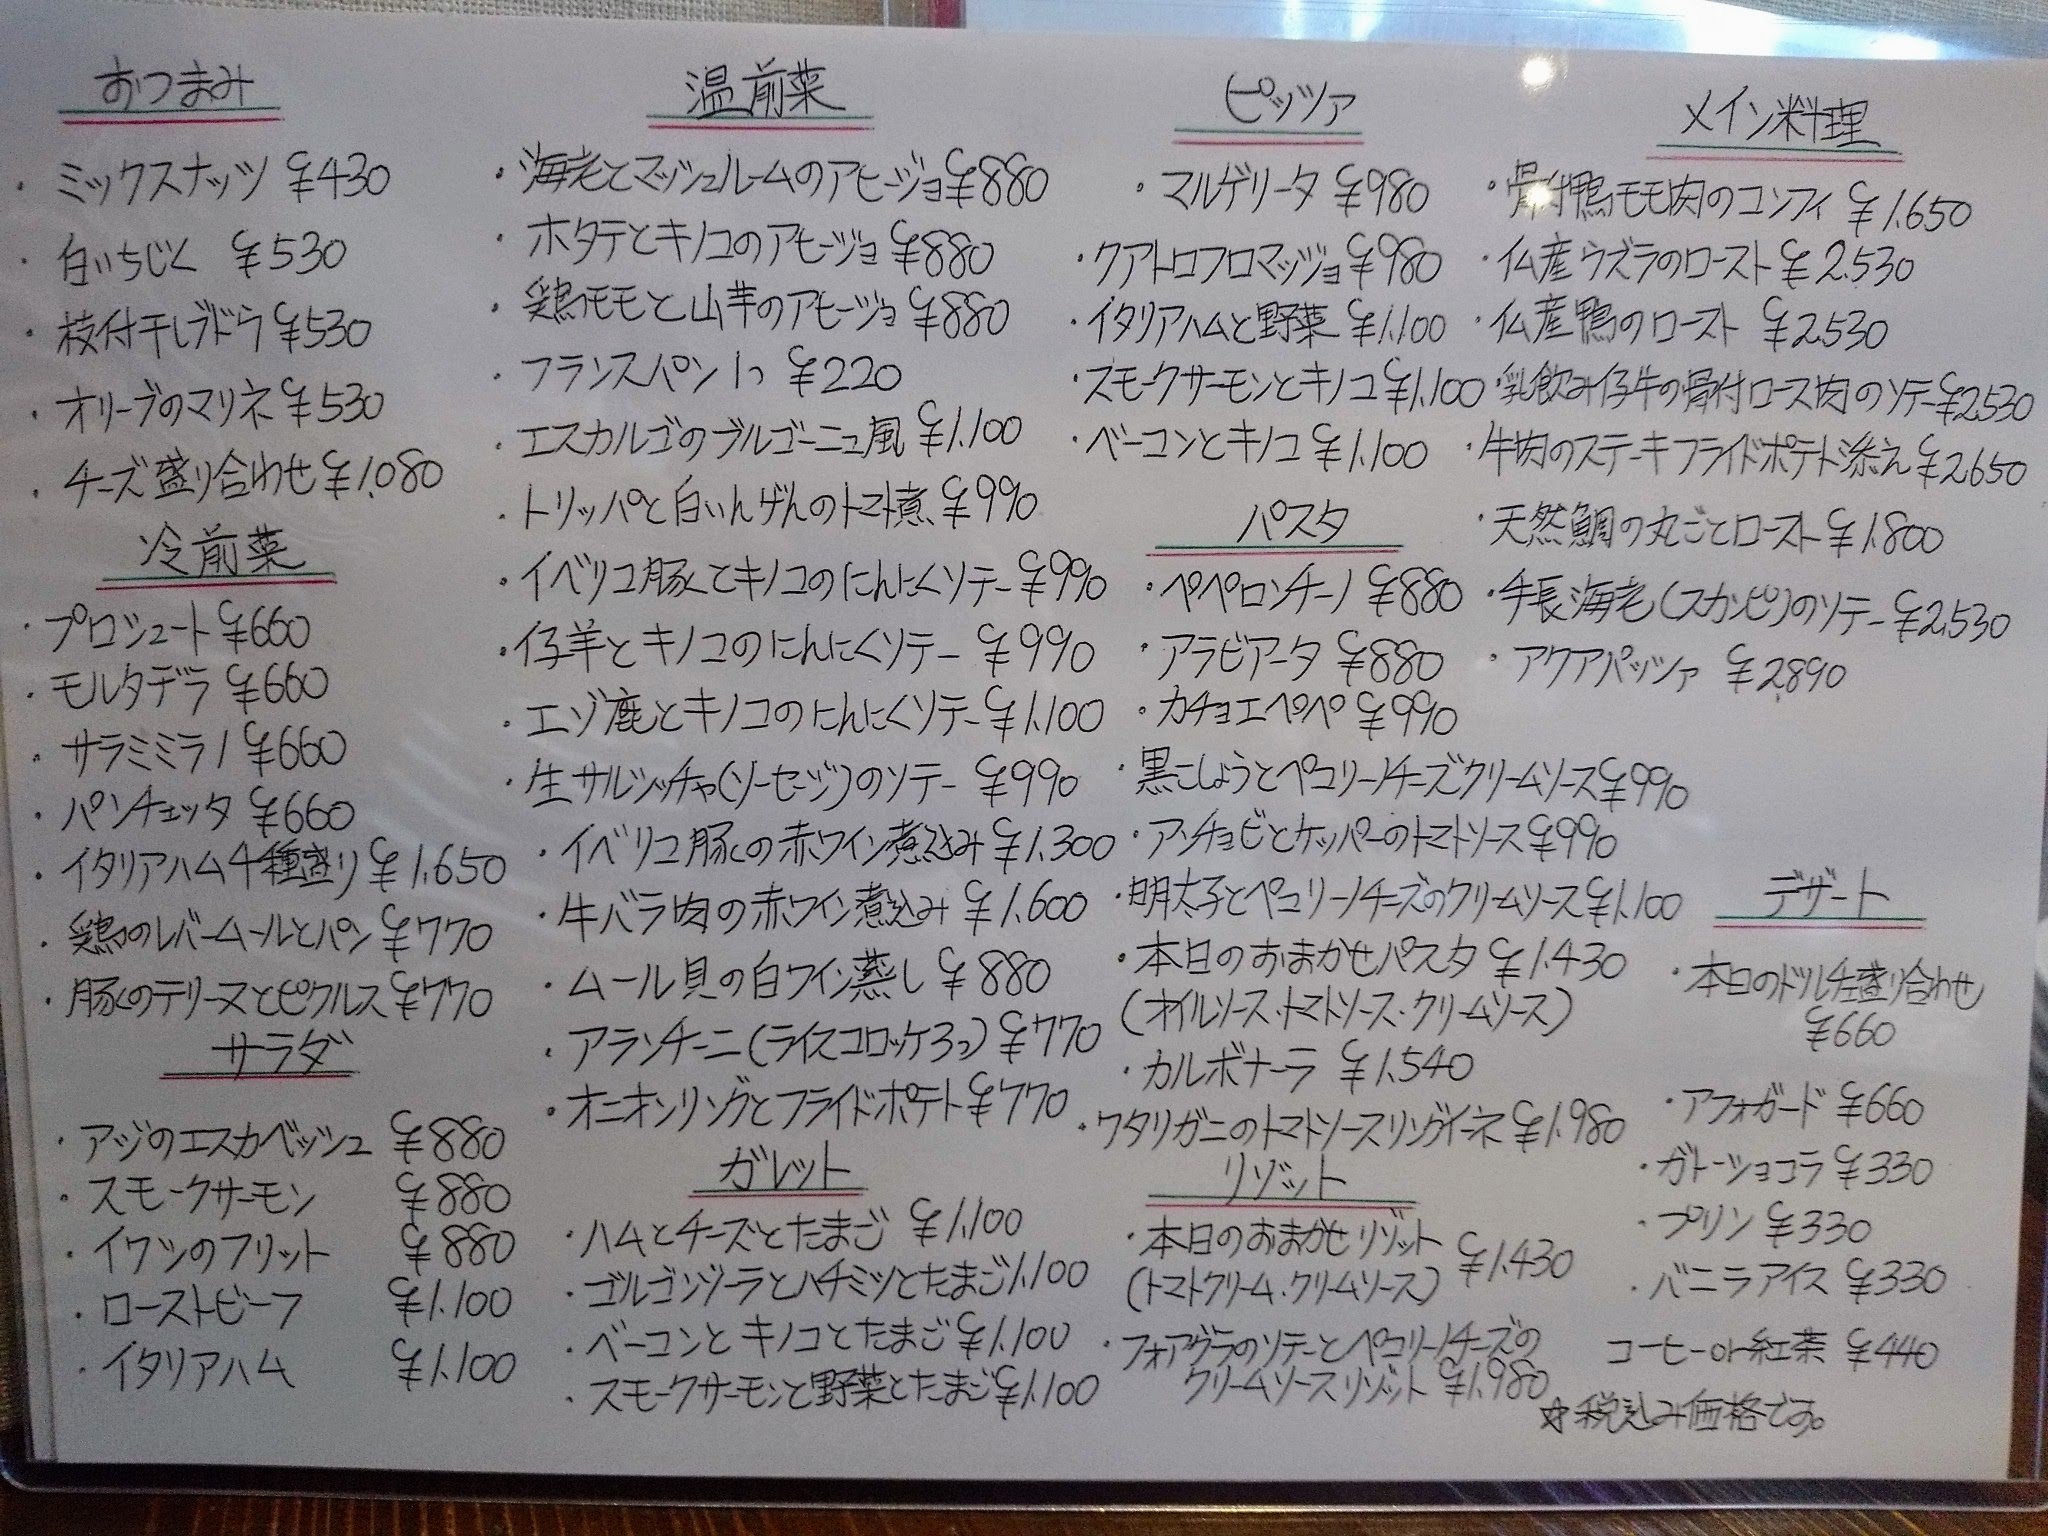 おつまみ
・ミックスナッツ ¥430
・白いちじく ¥530
・枝付干しブドウ ¥530
・オリーブのマリネ ¥530
・チーズ盛り合わせ ¥1,080
冷前菜
・プロシュート ¥660
・モルタデラ ¥660
・サラミミラノ ¥660
・パンチェッタ ¥660
・イタリアハム4種盛り ¥1,650
・鶏のレバームールとパン ¥770
・豚のテリーヌとピクルス ¥770
サラダ
・アジのエスカベッシュ ¥880
・スモークサーモン ¥880
・イワシのフリット ¥880
・ローストビーフ ¥1,100
・イタリアハム ¥1,100
温前菜
・海老とマッシュルームのアヒージョ ¥880
・ホタテとキノコのアヒージョ ¥880
・鶏モモと山芋のアヒージョ ¥880
・フランスパン1つ ¥220
・エスカルゴのブルゴーニュ風 ¥1,100
・トリッパと白いんげんのトマト煮 ¥990
・イベリコ豚とキノコのにんにくソテー ¥990
・仔羊とキノコのにんにくソテー ¥990
・エゾ鹿とキノコのにんにくソテー ¥1,100
・生サルシッチャ(ソーセージ)のソテー ¥990
・イベリコ豚の赤ワイン煮込み ¥1,300
・牛バラ肉の赤ワイン煮込み ¥1,600
・ムール貝の白ワイン蒸し ¥880
・アランチーニ(ライスコロッケ3つ) ¥770
・オニオンリングとフライドポテト ¥770
ガレット
・ハムとチーズとたまご ¥1,100
・ゴルゴンゾーラとハチミツとたまご 1,100
・ベーコンとキノコとたまご ¥1,100
・スモークサーモンと野菜とたまご ¥1,100
ピッツァ
・マルゲリータ ¥980
・クアトロフロマッジョ ¥980
・イタリアハムと野菜 ¥1,100
・スモークサーモンとキノコ ¥1,100
・ベーコンとキノコ ¥1,100
パスタ
・ペペロンチーノ ¥880
・アラビアータ ¥880
・カチョエペペ ¥990
・黒こしょうとペコリーノチーズクリームソース ¥990
・アンチョビとケッパーのトマトソース ¥990
・明太子とペコリーノチーズのクリームソース ¥1,100
・本日のおまかせパスタ ¥1,430
(オイルソース・トマトソース・クリームソース)
・カルボナーラ ¥1,540
・ワタリガニのトマトソースリングイーネ ¥1,980
リゾット
・本日のおまかせリゾット ¥1,430
(トマトクリーム・クリームソース)
・フォアグラのソテーとペコリーノチーズの
クリームソースリゾット ¥1,980
メイン料理
・骨付鴨モモ肉のコンフィ ¥1,650
・仏産ウズラのロースト ¥2,530
・仏産鴨のロースト ¥2,530
・乳飲み仔牛の骨付ロース肉のソテー ¥2,530
・牛肉のステーキフライドポテト添え ¥2,650
・天然鯛の丸ごとロースト ¥1,800
・手長海老(スカンピ)のソテー ¥2,530
・アクアパッツァ ¥2,890
デザート
・本日のドルチェ盛り合わせ
¥660
・アフォガード ¥660
・ガトーショコラ ¥330
・プリン ¥330
・バニラアイス ¥330
コーヒーor紅茶 ¥440
☆税込み価格です。